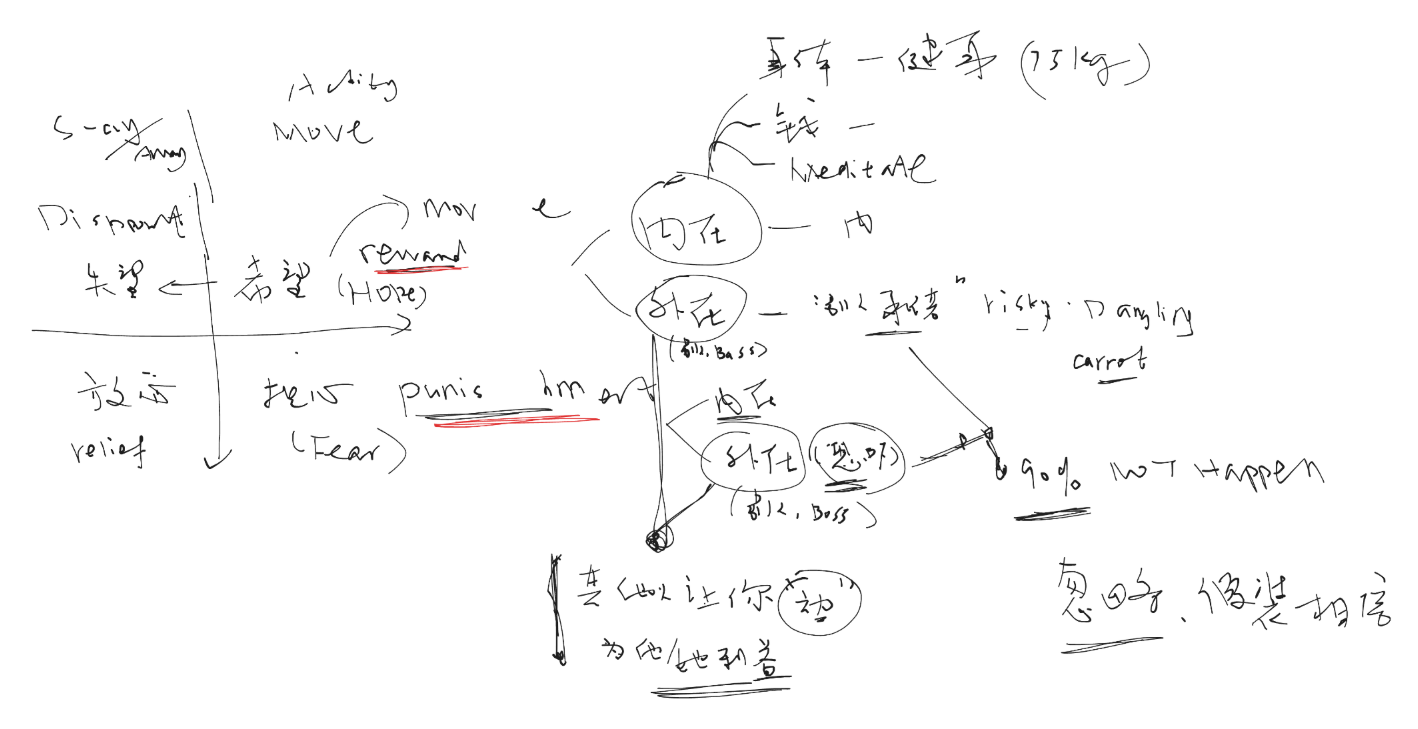 身体 — 健身 (75kg)
钱 —
meditate
Move
S-ay/Away
内在 — 内
Move
reward
失望 ← 希望 (Hope)
外在 — "别人承诺" risky. Dangling
carrot
(别人, Boss)
放心 担心 punishment
relief (Fear)
内在
外在 (恐吓)
(别人, Boss)
90% NOT Happen
其他人让你"动"
为他/她利益
忽略、假装相信